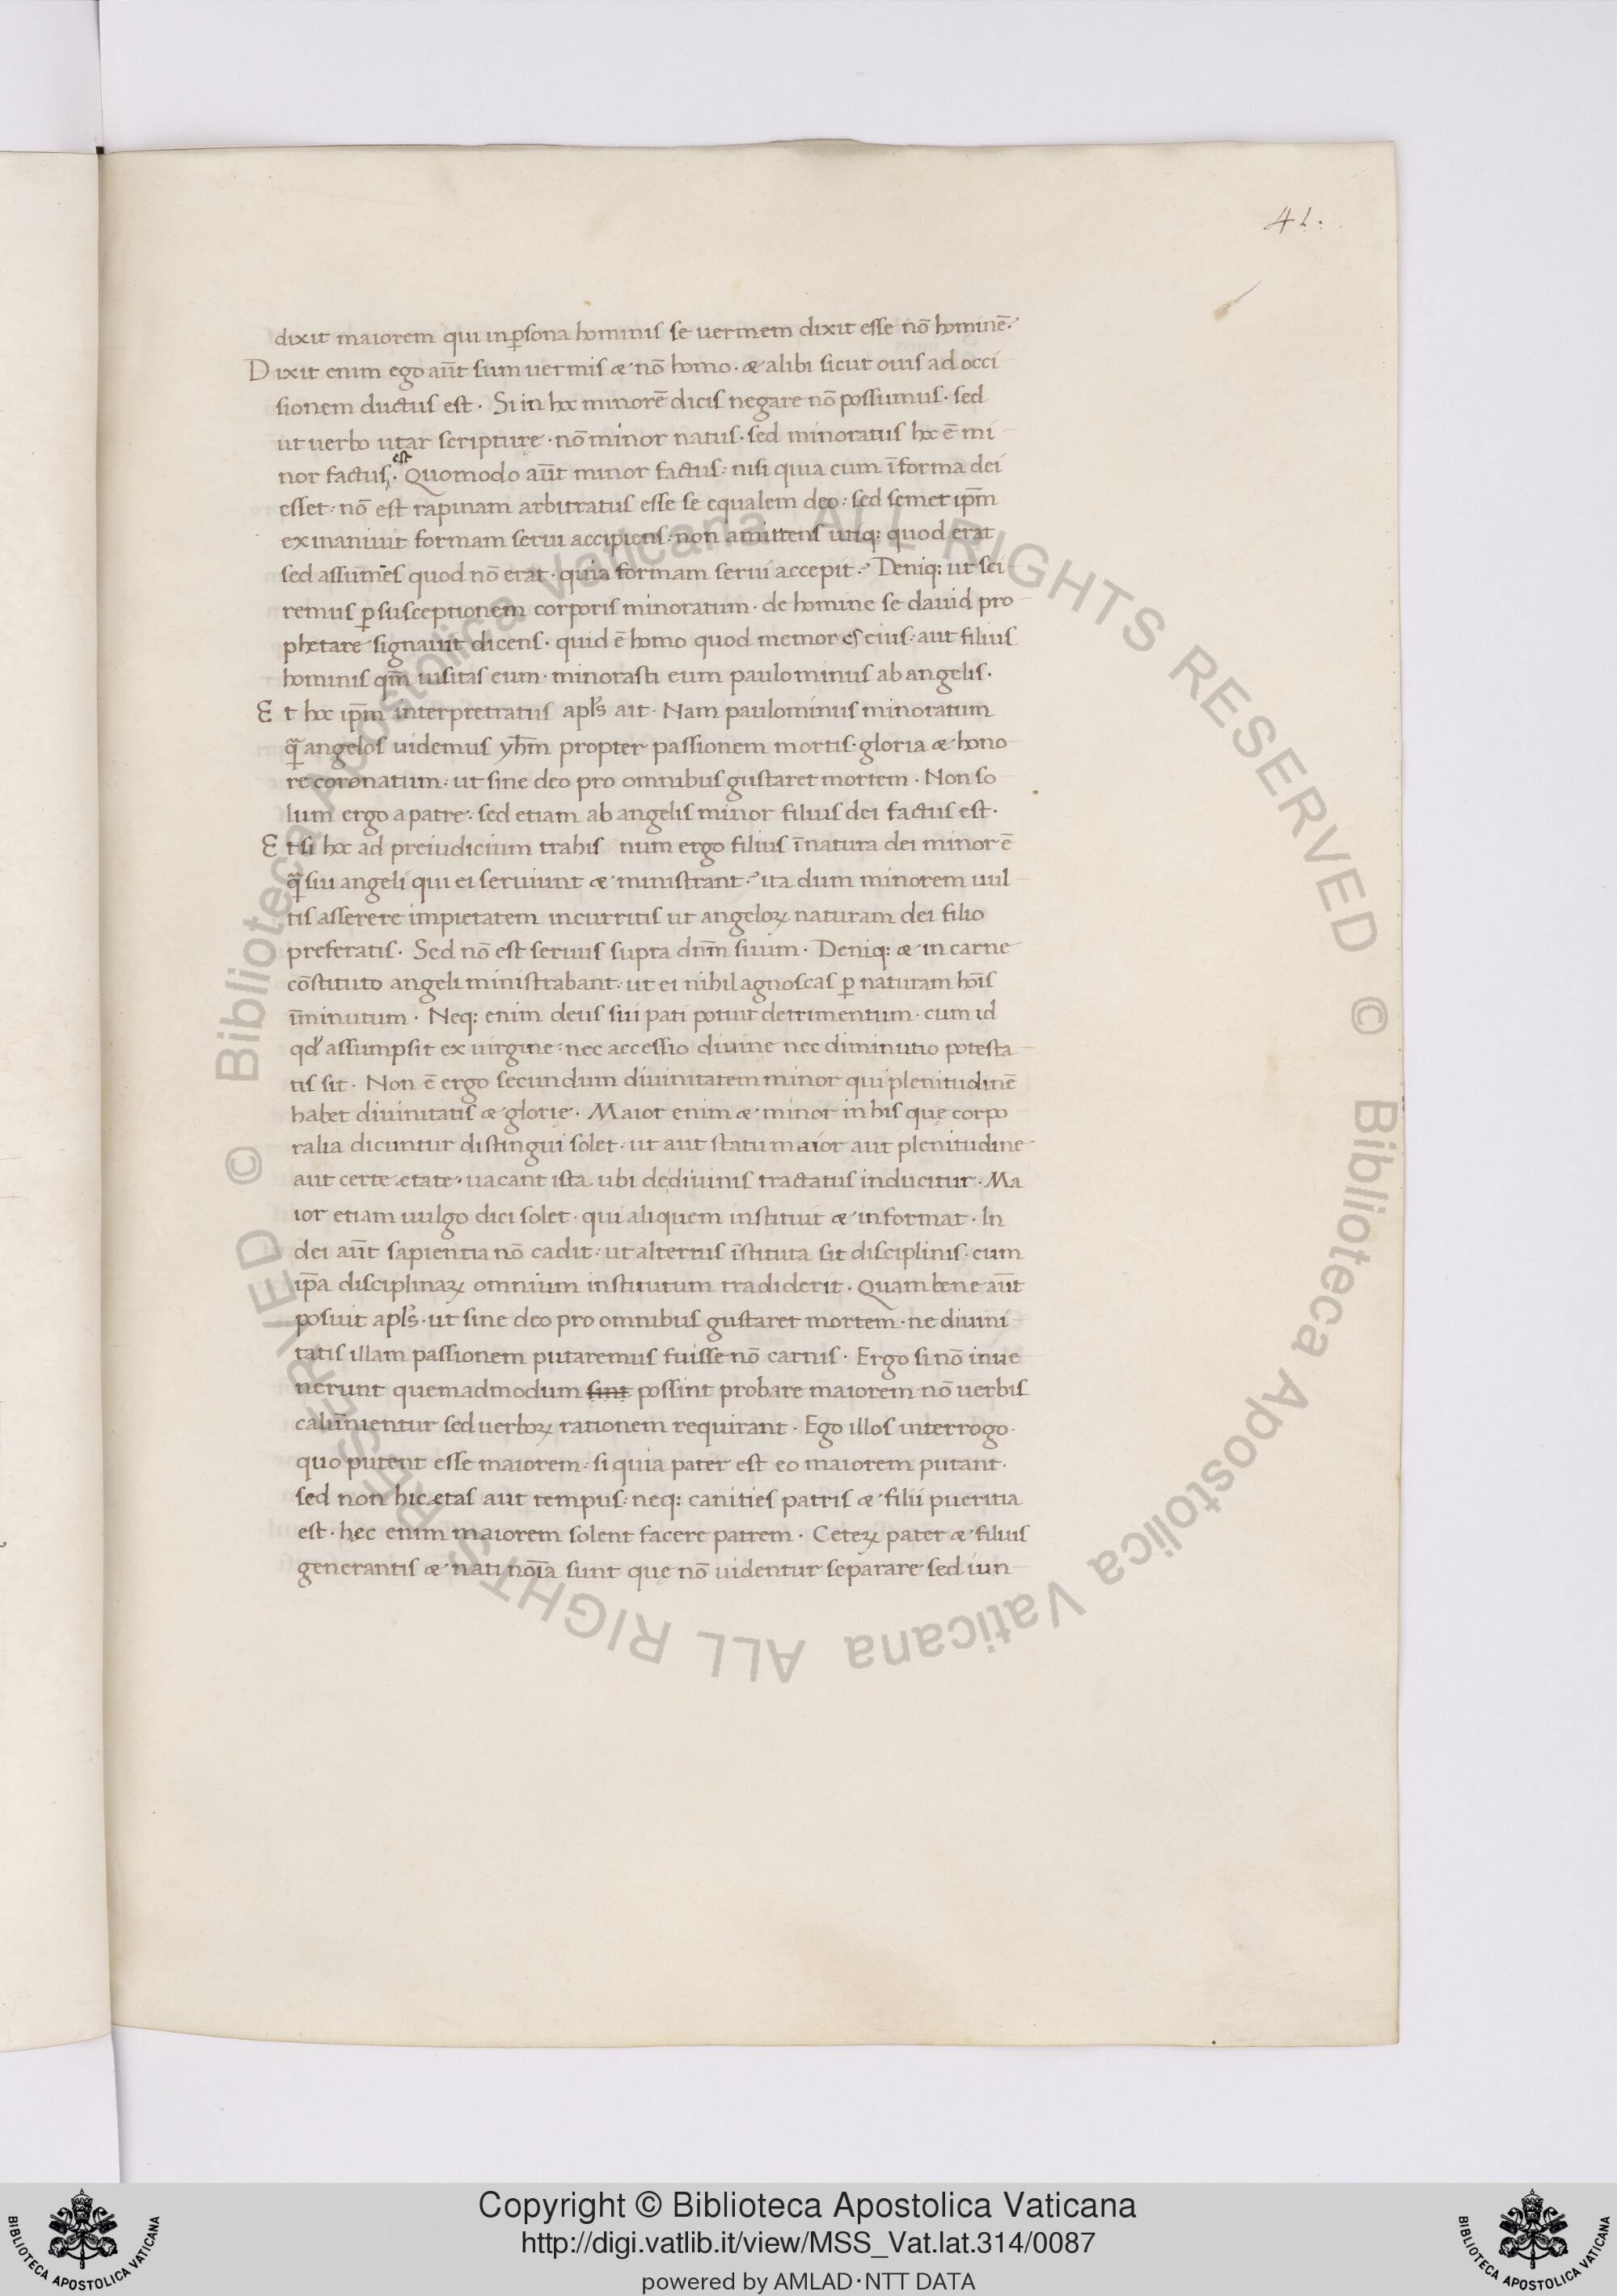 41:
dixit maiorem qui inp̱sona hominis se uermem dixit esse nō hominē.
Dixit enim ego aūt sum uermis æ nō homo · æ alibi sicut ouis ad occi
sionem ductus est · Si in hoc minorē dicis negare nō possumus · sed
ut uerbo utar scripturę · nō minor natus · sed minoratus hoc ē mi
nor factus est · Quomodo aūt minor factus : nisi quia cum ī forma dei
esset : nō est rapinam arbitratus esse se equalem deo : sed semet ip̄m
exinaniuit formam serui accipiens : non amittens utiq: quod erat
sed assumēs quod nō erat · quia formam serui accepit · Deniq: ut sci
remus ꝑ susceptionem corporis minoratum · de homine se dauid pro
phetare signauit dicens · quid ē homo quod memor es eius : aut filius
hominis qm̄ uisitas eum · minorasti eum paulominus ab angelis ·
Et hoc ip̄m interpretratus apl's ait · Nam paulominus minoratum
ꝗ̄ angelos uidemus yhm̄ propter passionem mortis · gloria æ hono
re coronatum : ut sine deo pro omnibus gustaret mortem · Non so
lum ergo a patre : sed etiam ab angelis minor filius dei factus est ·
Et si hoc ad preiudicium trahis num ergo filius ī natura dei minor ē
ꝗ̄ sui angeli qui ei seruiunt æ ministrant · ita dum minorem uul
tis asserere impietatem incurritis ut angeloꝝ naturam dei filio
preferatis · Sed nō est seruus supra dnm̄ suum · Deniq: æ in carne
cōstituto angeli ministrabant · ut ei nihil agnoscas ꝑ naturam hoīs
īminutum · Neq: enim deus sui pati potuit detrimentum · cum id
qd' assumpsit ex uirgine : nec accessio diuine nec diminutio potesta
tis sit · Non ē ergo secundum diuinitatem minor qui plenitudinē
habet diuinitatis æ glorię · Maior enim æ minor in his quę corpo
ralia dicuntur distingui solet · ut aut statu maior aut plenitudine
aut certe etate · uacant ista ubi de diuinis tractatus inducitur · Ma
ior etiam uulgo dici solet · qui aliquem instituit æ informat · In
dei aūt sapientia nō cadit : ut alterius īstituta sit disciplinis · cum
ip̄a disciplinaꝝ omnium institutum tradiderit · Quam bene aūt
posuit apl's · ut sine deo pro omnibus gustaret mortem · ne diuini
tatis illam passionem putaremus fuisse nō carnis · Ergo si nō inue
nerunt quemadmodum sint possint probare maiorem nō uerbis
calūnientur sed uerboꝝ rationem requirant · Ego illos interrogo ·
quo putent esse maiorem : si quia pater est eo maiorem putant ·
sed non hic ętas aut tempus : neq: canities patris æ filii pueritia
est · hęc enim maiorem solent facere patrem · Ceteꝝ pater æ filius
generantis æ nati noīa sunt quę nō uidentur separare sed iun
© Biblioteca Apostolica Vaticana ALL RIGHTS RESERVED © Biblioteca Apostolica Vaticana ALL RIGHTS RESERVED
Copyright © Biblioteca Apostolica Vaticana
http://digi.vatlib.it/view/MSS_Vat.lat.314/0087
powered by AMLAD·NTT DATA
BIBLIOTECA APOSTOLICA VATICANA
BIBLIOTECA APOSTOLICA VATICANA